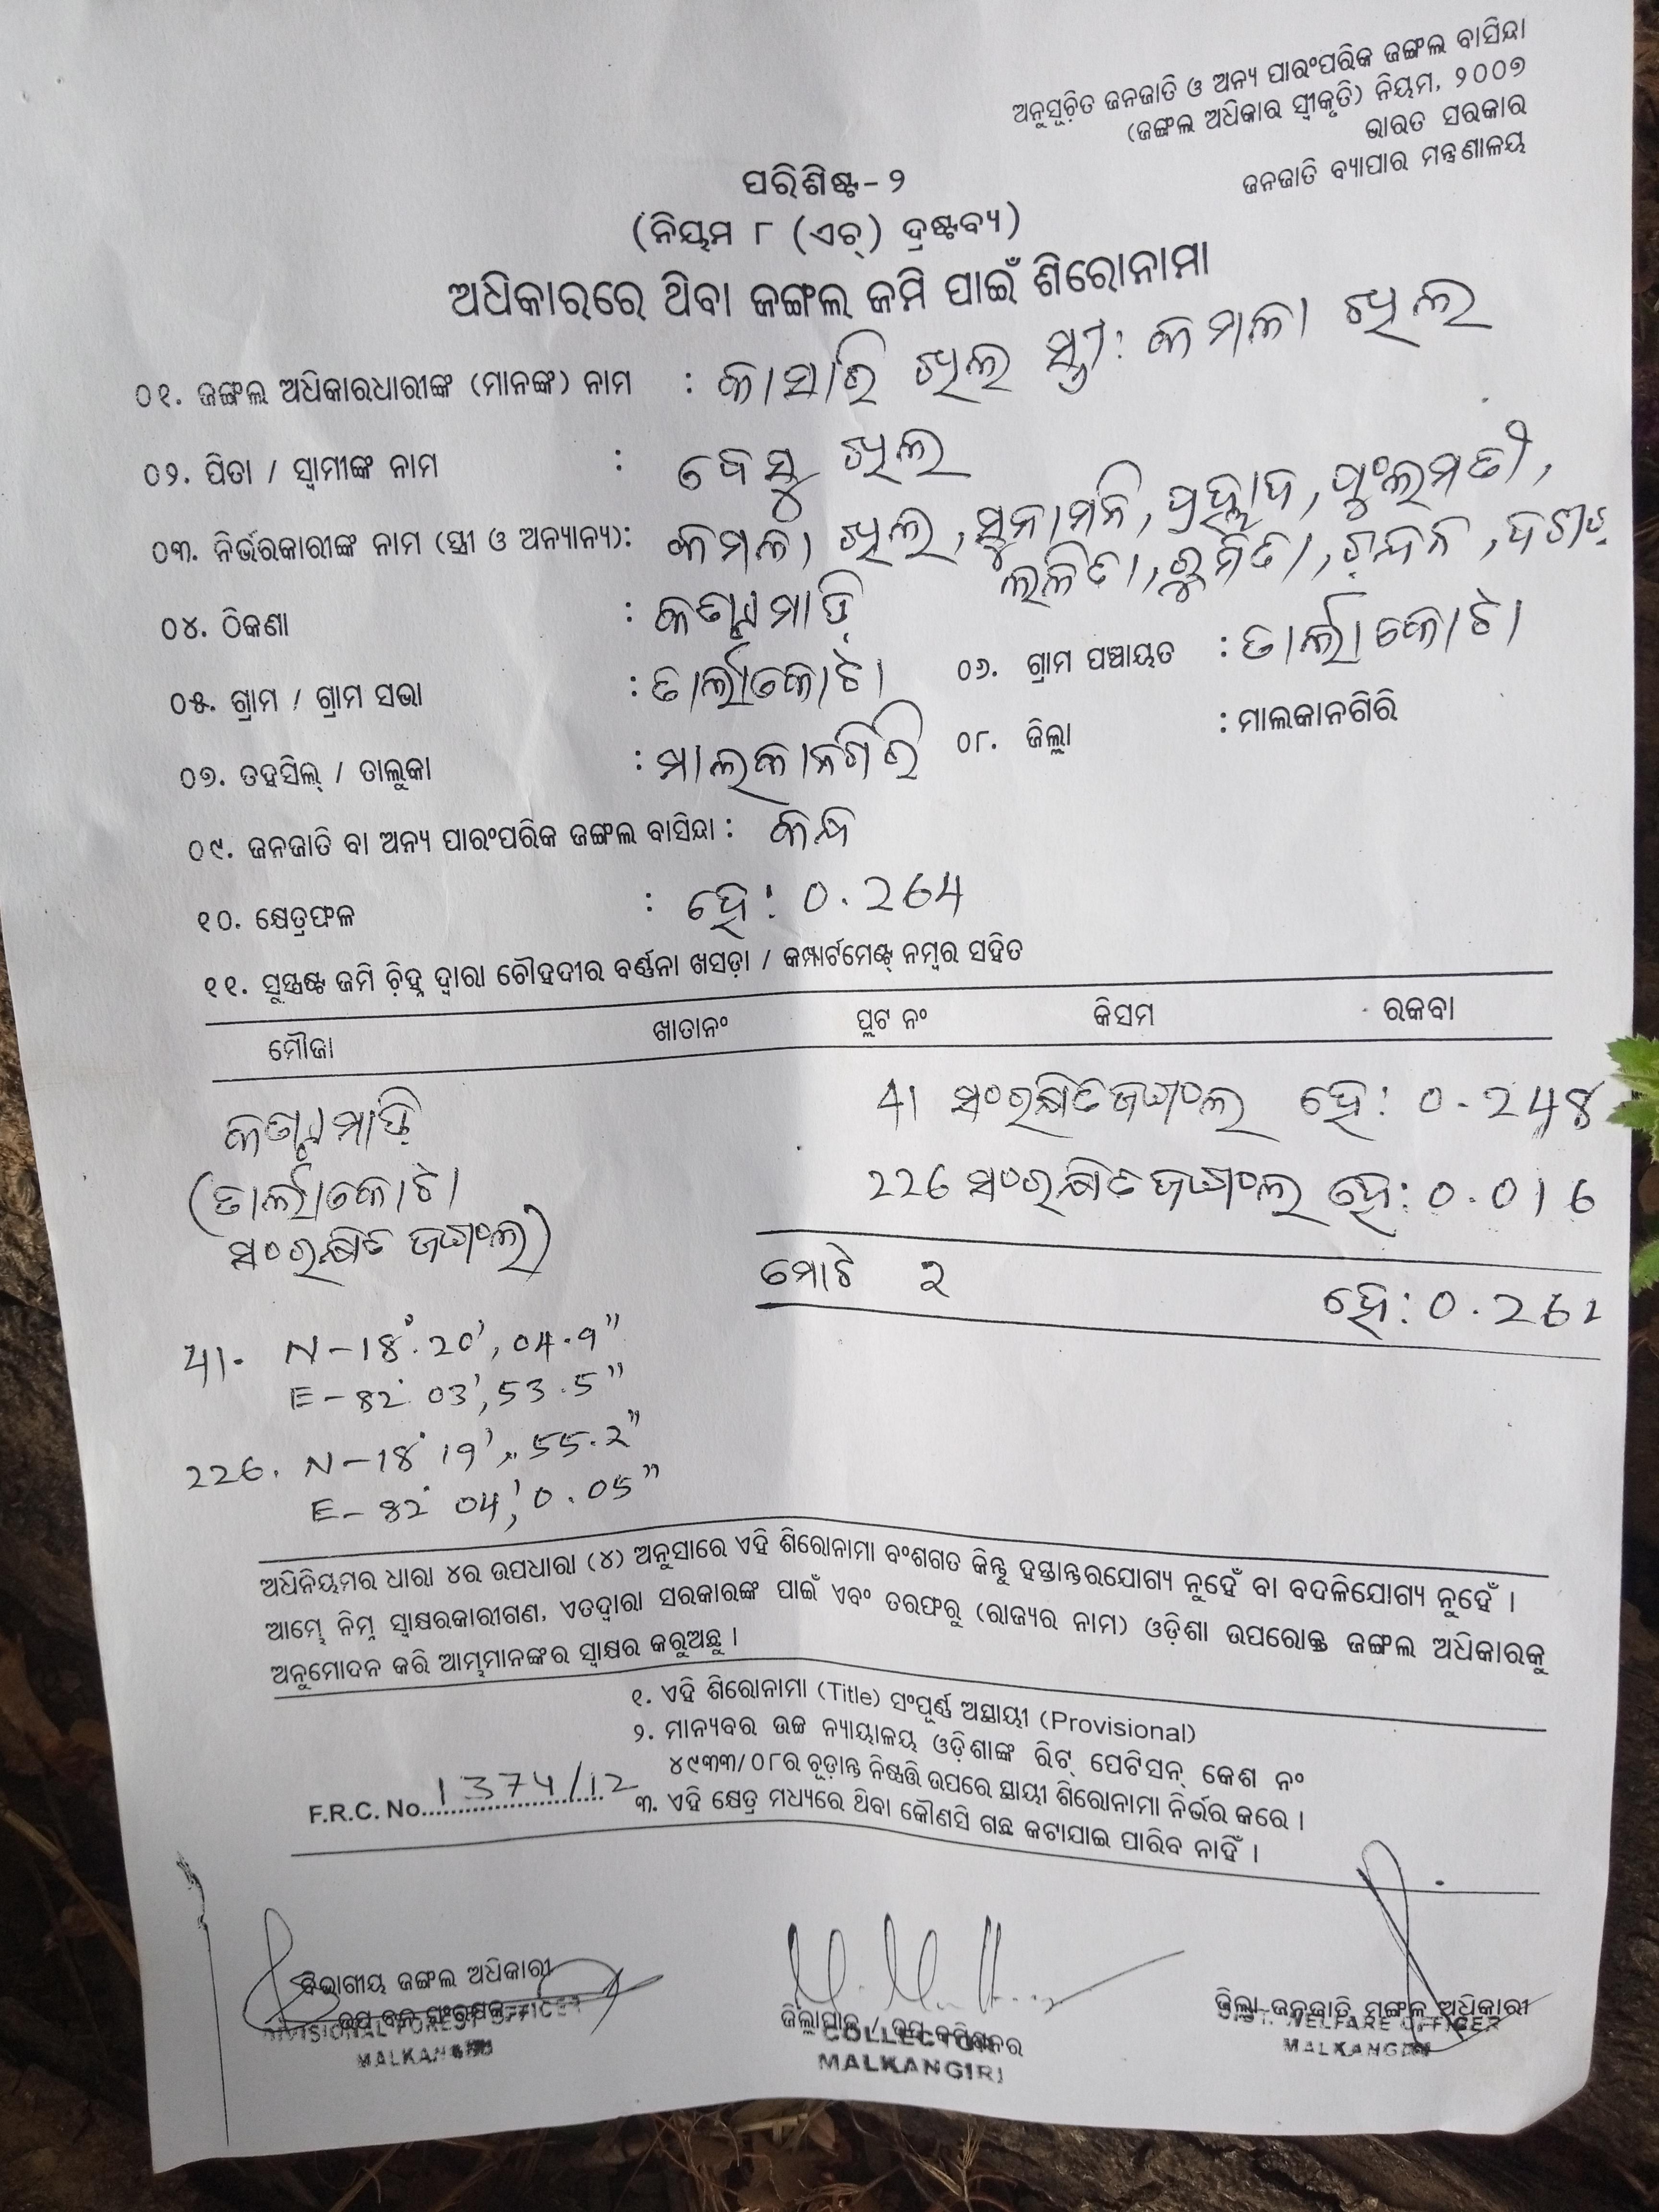 ଅନୁସୂଚିତ ଜନଜାତି ଓ ଅନ୍ୟ ପାରଂପରିକ ଜଙ୍ଗଲ ବାସିନ୍ଦା
(ଜଙ୍ଗଲ ଅଧିକାର ସ୍ୱୀକୃତି) ନିୟମ, ୨୦୦୭
ଭାରତ ସରକାର
ଜନଜାତି ବ୍ୟାପାର ମନ୍ତ୍ରଣାଳୟ
ପରିଶିଷ୍ଟ-୨
(ନିୟମ ୮ (ଏଚ୍) ଦ୍ରଷ୍ଟବ୍ୟ)
ଅଧିକାରରେ ଥିବା ଜଙ୍ଗଲ ଜମି ପାଇଁ ଶିରୋନାମା
୦୧. ଜଙ୍ଗଲ ଅଧିକାରଧାରୀଙ୍କ (ମାନଙ୍କ) ନାମ : କାସାରି ଖିଲ ସ୍ତ୍ରୀ: କମଳା ଖିଲ
୦୨. ପିତା / ସ୍ୱାମୀଙ୍କ ନାମ : ବେସୁ ଖିଲ
୦୩. ନିର୍ଭରକାରୀଙ୍କ ନାମ (ସ୍ତ୍ରୀ ଓ ଅନ୍ୟାନ୍ୟ): କମଳା ଖିଲ, ସୁନାମନି, ପ୍ରହ୍ଲାଦ, ଫୁଲମତୀ,
ଲଳିତା, ଚନ୍ଦନ,
୦୪. ଠିକଣା :
୦୫. ଗ୍ରାମ / ଗ୍ରାମ ସଭା : ତାର୍ଲାକୋଟା ୦୬. ଗ୍ରାମ ପଞ୍ଚାୟତ : ତାର୍ଲାକୋଟା
୦୭. ତହସିଲ୍ / ତାଲୁକା : ମାଲକାନଗିରି ୦୮. ଜିଲ୍ଲା : ମାଲକାନଗିରି
୦୯. ଜନଜାତି ବା ଅନ୍ୟ ପାରଂପରିକ ଜଙ୍ଗଲ ବାସିନ୍ଦା : କନ୍ଧ
୧୦. କ୍ଷେତ୍ରଫଳ : ହେ: 0.264
୧୧. ସୁସ୍ପଷ୍ଟ ଜମି ଚିହ୍ନ ଦ୍ୱାରା ଚୌହଦୀର ବର୍ଣ୍ଣନା ଖସଡ଼ା / କମ୍ପାର୍ଟମେଣ୍ଟ୍ ନମ୍ବର ସହିତ
ମୌଜା ଖାତାନଂ ପ୍ଲଟ ନଂ କିସମ ରକବା
41 ସଂରକ୍ଷିତ ଜଙ୍ଗଲ ହେ: 0.248
(ତାର୍ଲାକୋଟା 226 ସଂରକ୍ଷିତ ଜଙ୍ଗଲ ହେ: 0.016
ସଂରକ୍ଷିତ ଜଙ୍ଗଲ)
ମୋଟ ୨ ହେ: 0.262
41. N-18° 20', 04.9"
E-82° 03', 53.5"
226. N-18° 19', 55.2"
E-82° 04', 0.05"
ଅଧିନିୟମର ଧାରା ୪ର ଉପଧାରା (୪) ଅନୁସାରେ ଏହି ଶିରୋନାମା ବଂଶଗତ କିନ୍ତୁ ହସ୍ତାନ୍ତରଯୋଗ୍ୟ ନୁହେଁ ବା ବଦଳିଯୋଗ୍ୟ ନୁହେଁ ।
ଆମ୍ଭେ ନିମ୍ନ ସ୍ୱାକ୍ଷରକାରୀଗଣ, ଏତଦ୍ୱାରା ସରକାରଙ୍କ ପାଇଁ ଏବଂ ତରଫରୁ (ରାଜ୍ୟର ନାମ) ଓଡ଼ିଶା ଉପରୋକ୍ତ ଜଙ୍ଗଲ ଅଧିକାରକୁ
ଅନୁମୋଦନ କରି ଆମ୍ଭମାନଙ୍କର ସ୍ୱାକ୍ଷର କରୁଅଛୁ ।
୧. ଏହି ଶିରୋନାମା (Title) ସଂପୂର୍ଣ୍ଣ ଅସ୍ଥାୟୀ (Provisional)
୨. ମାନ୍ୟବର ଉଚ୍ଚ ନ୍ୟାୟାଳୟ ଓଡ଼ିଶାଙ୍କ ରିଟ୍ ପେଟିସନ୍ କେଶ ନଂ
୪୯୩୩/୦୮ର ଚୂଡ଼ାନ୍ତ ନିଷ୍ପତ୍ତି ଉପରେ ସ୍ଥାୟୀ ଶିରୋନାମା ନିର୍ଭର କରେ ।
F.R.C. No. 1374/12
୩. ଏହି କ୍ଷେତ୍ର ମଧ୍ୟରେ ଥିବା କୌଣସି ଗଛ କଟାଯାଇ ପାରିବ ନାହିଁ ।
ବିଭାଗୀୟ ଜଙ୍ଗଲ ଅଧିକାରୀ
ଉପ ବନ ସଂରକ୍ଷକ
DIVISIONAL FOREST OFFICER
MALKANGIRI
ଜିଲ୍ଲାପାଳ / ଉପ କମିଶନର
COLLECTOR
MALKANGIRI
ଜିଲ୍ଲା ଜନଜାତି ମଙ୍ଗଳ ଅଧିକାରୀ
DIST. WELFARE OFFICER
MALKANGIRI